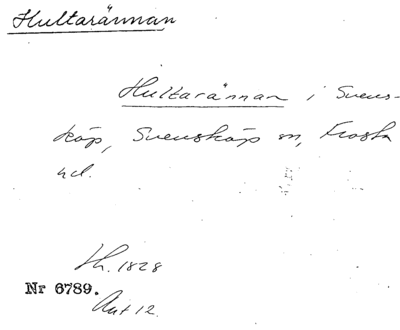 Hultarännan
Hultarännan i Svens-
köp, Svensköps sn, Frosta
hd.
Lh. 1828
Nr 6789.
Ant 12.